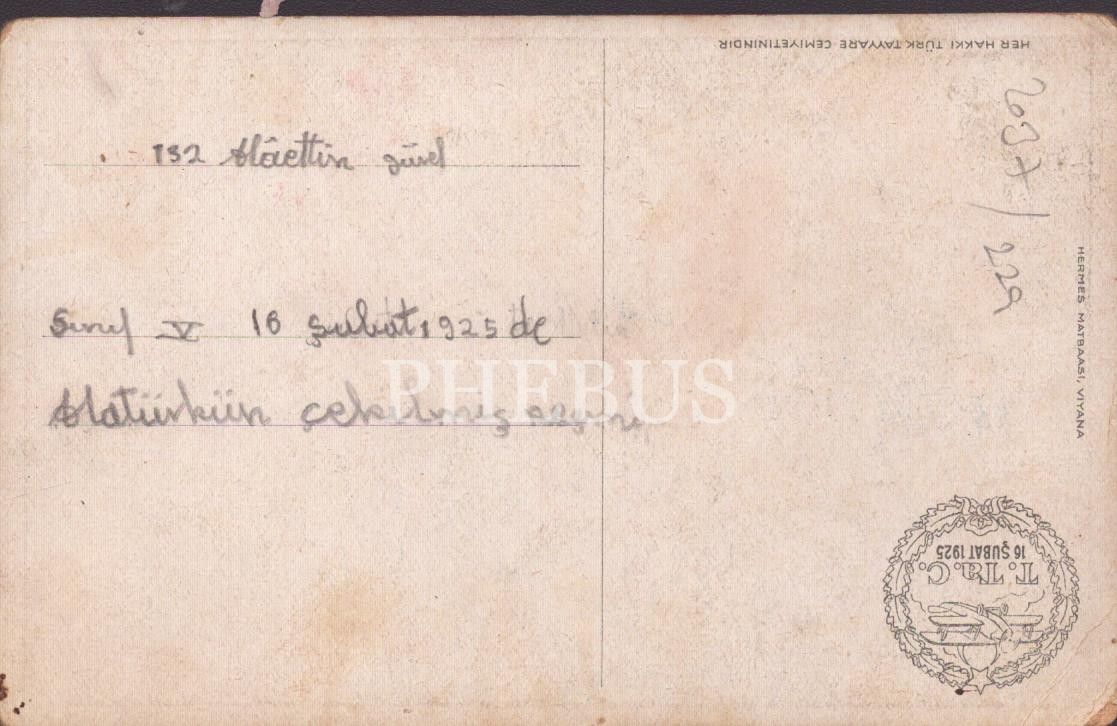 HER HAKKI TÜRK TAYYARE CEMİYETİNİNDİR
132 Alâettin güsel
Sınıf V 16 Şubat 1925 de
Atatürkün çekilmiş
PHEBUS
HERMES MATBAASI, VİYANA
T. Ta. C.
16 ŞUBAT 1925